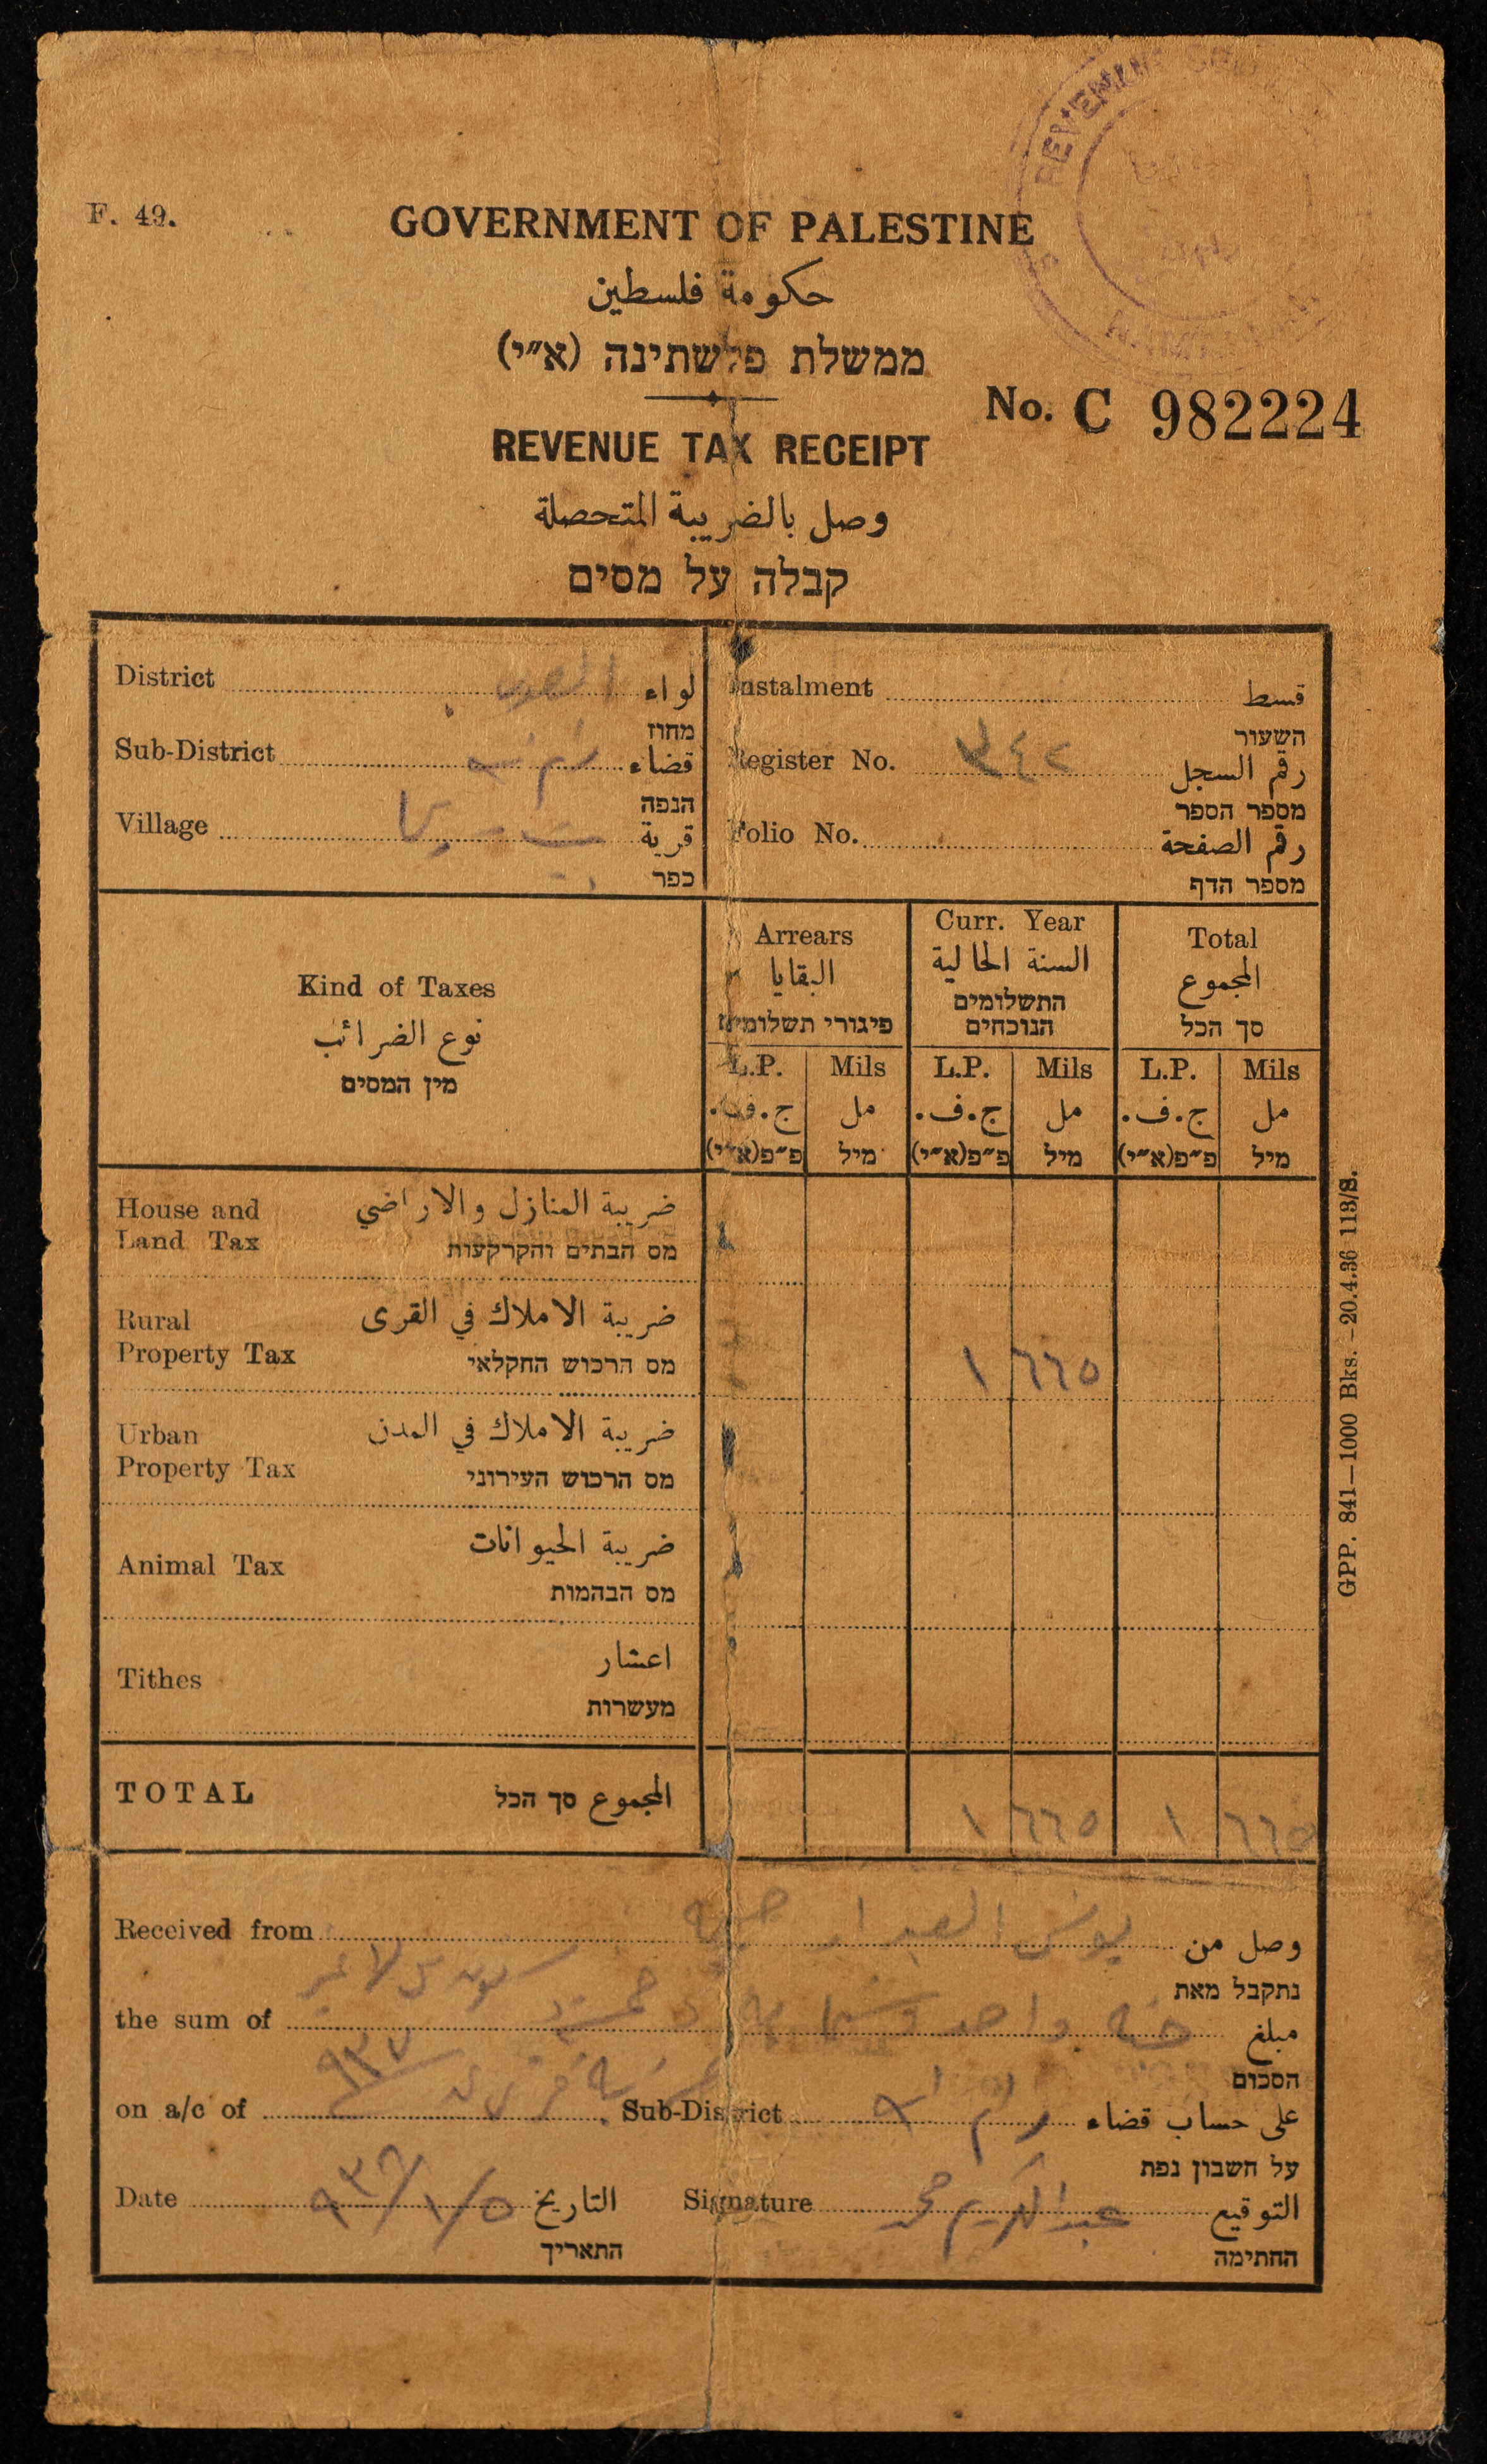 REVENUE
F. 49.
GOVERNMENT OF PALESTINE
حكومة فلسطين
ממשלת פלשתינה (א״י)
No. C 982224
REVENUE TAX RECEIPT
وصل بالضريبة المتحصلة
קבלה על מסים
District القدس لواء
מחוז
Sub-District رام الله قضاء
הנפה
Village بيت سيرا قرية
כפר
Instalment قسط
השעור
Register No. ٣٤٢ رقم السجل
מספר הספר
Folio No. رقم الصفحة
מספר הדף
Kind of Taxes
نوع الضرائب
מין המסים
Arrears
البقايا
פיגורי תשלומים
Curr. Year
السنة الحالية
התשלומים
הנוכחים
Total
المجموع
סך הכל
L.P. Mils L.P. Mils L.P. Mils
ج.ف. مل ج.ف. مل ج.ف. مل
פ״פ(א״י) מיל פ״פ(א״י) מיל פ״פ(א״י) מיל
House and ضريبة المنازل والاراضي
Land Tax מס הבתים והקרקעות
Rural ضريبة الاملاك في القرى
Property Tax מס הרכוש החקלאי
١ ٦٦٥
Urban ضريبة الاملاك في المدن
Property Tax מס הרכוש העירוני
Animal Tax ضريبة الحيوانات
מס הבהמות
Tithes اعشار
מעשרות
TOTAL المجموع סך הכל
١ ٦٦٥ ١ ٦٦٥
Received from يونس العبد وصل من
נתקבל מאת
the sum of جنيه واحد وستماية وخمسة وستون مل لاغير مبلغ
הסכום
on a/c of ٩٣٧ Sub-District رام الله على حساب قضاء
על חשבון נפת
Date ٩٣٦/١/٥ التاريخ Signature عبد الكريم محمد التوقيع
התאריך החתימה
GPP. 841—1000 Bks. —20.4.36 113/S.